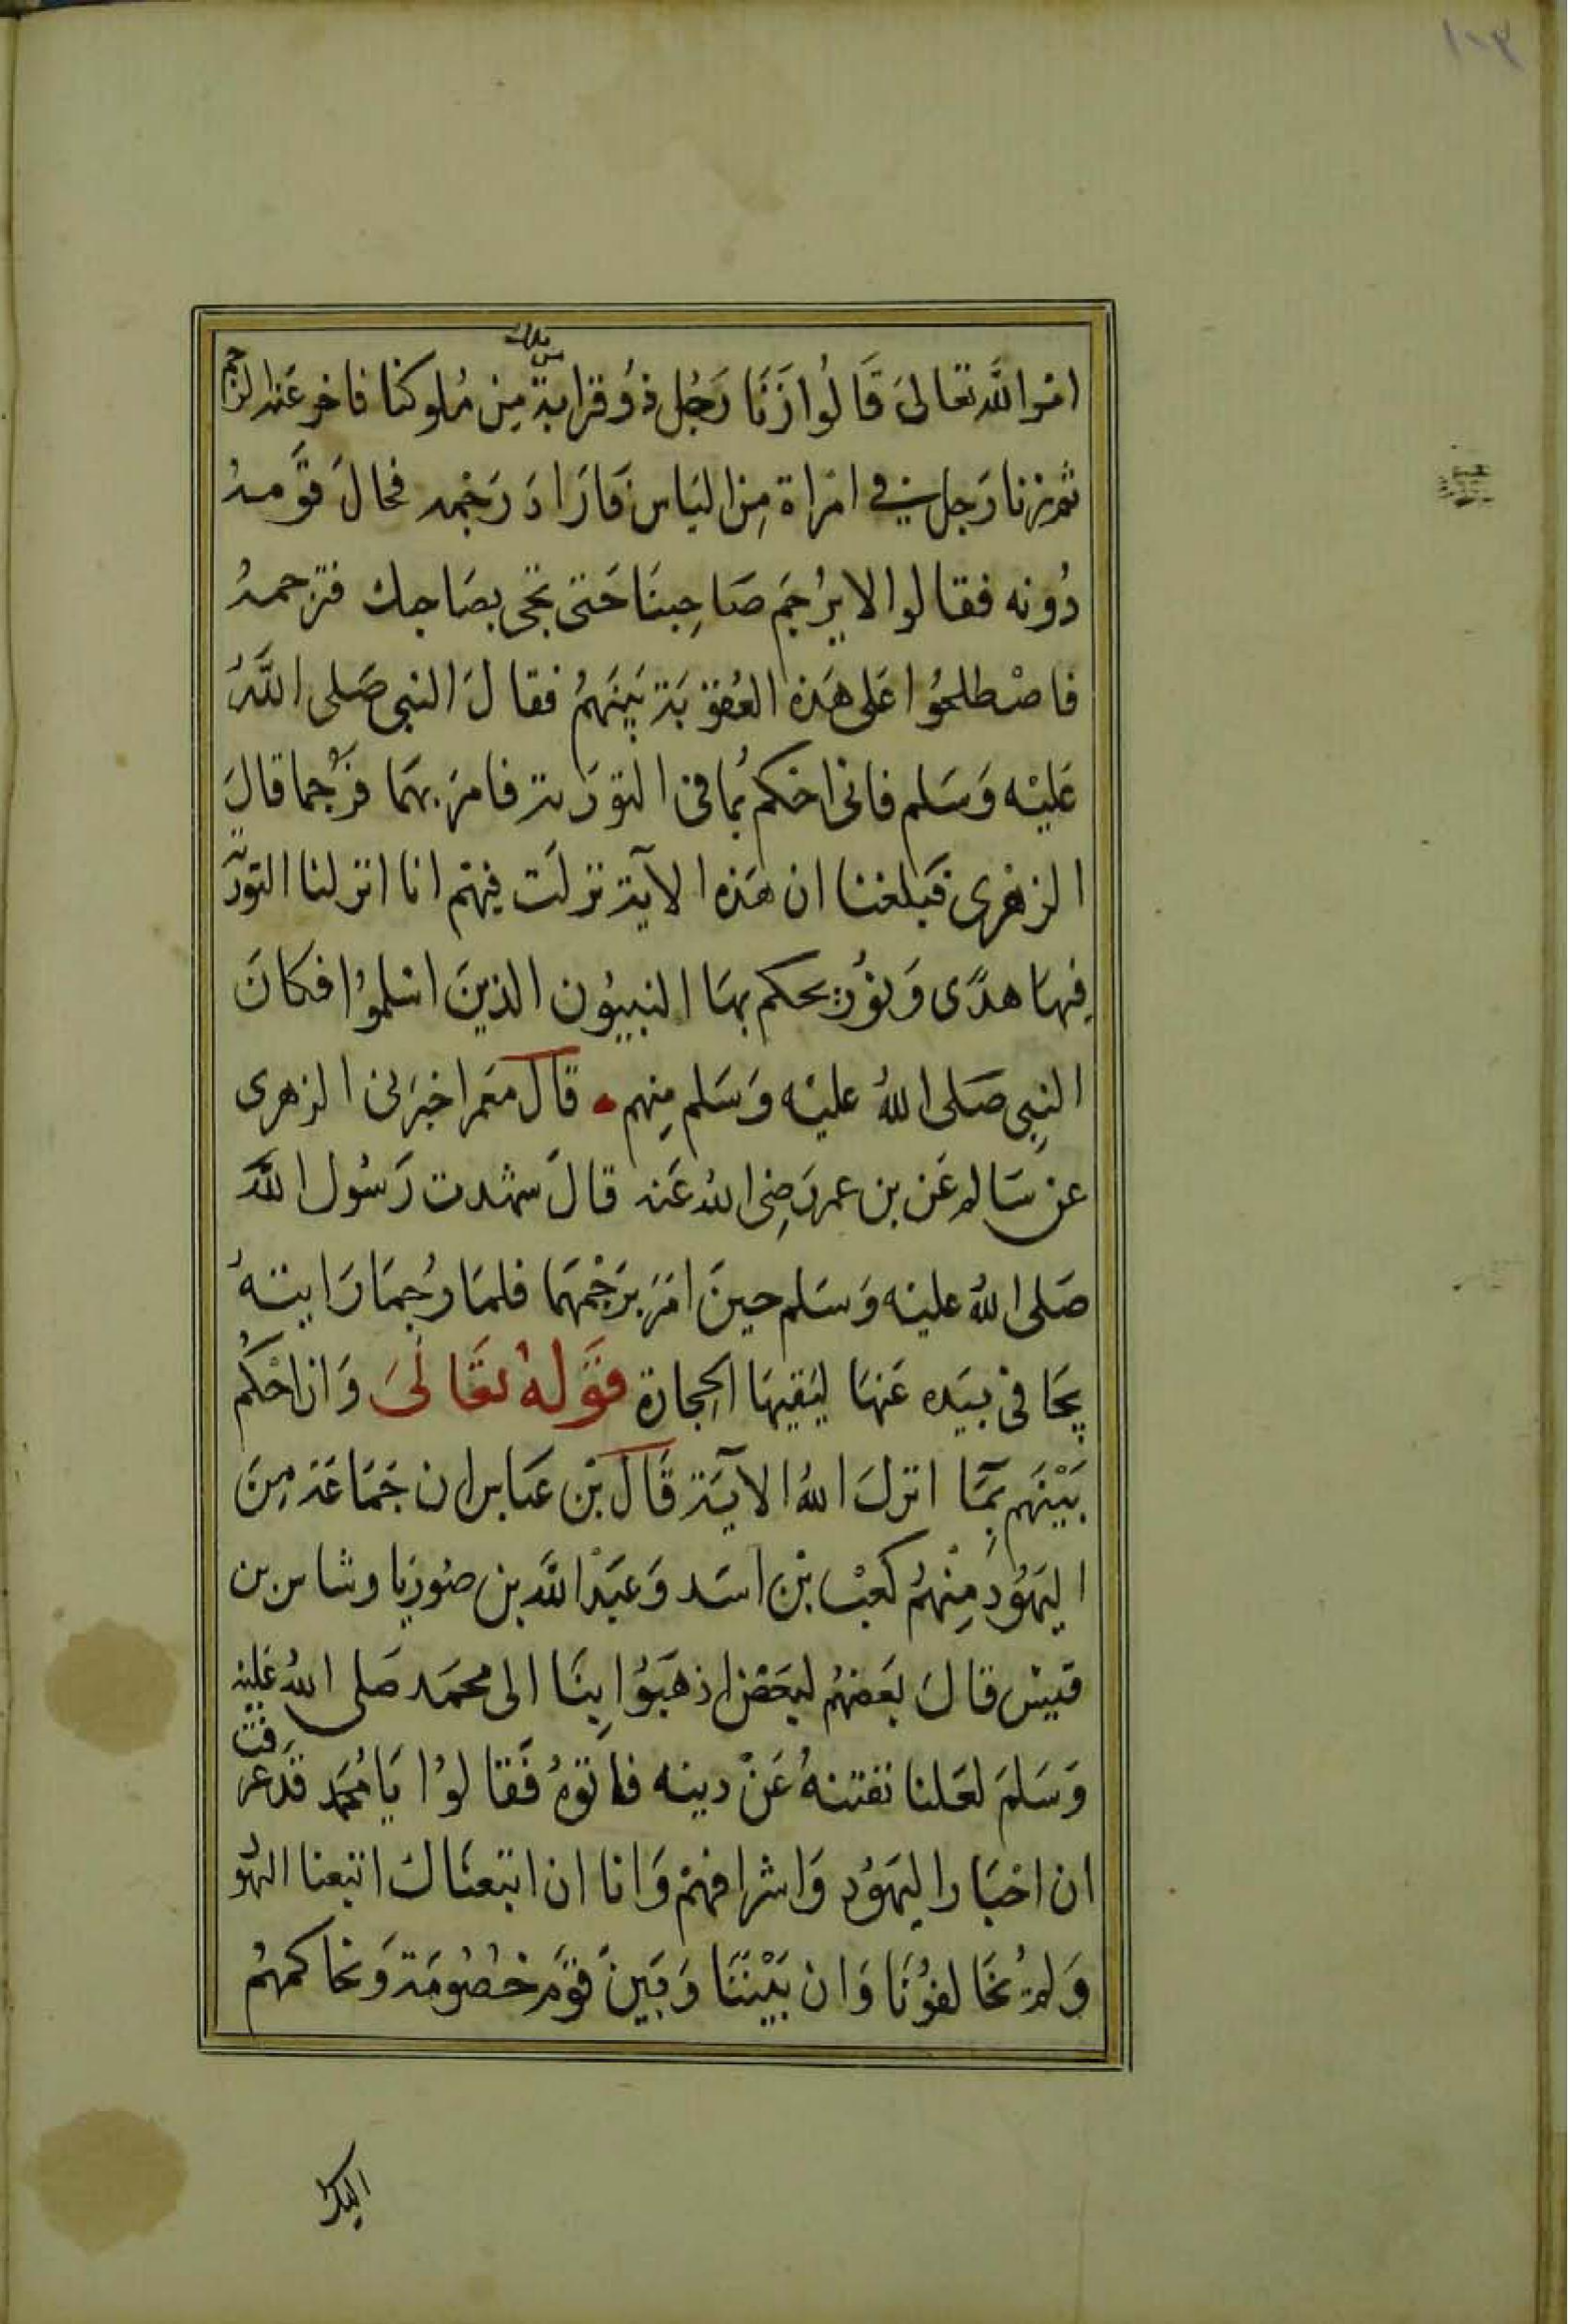 ١٠٣
امر الله تعالى قَالُوا زَنَا رَجُل ذُو قرابة مِن مُلوكنا فاخر عَنه الرجم
ثم زنا رَجل في امرَاة مِن الناس فَارَادَ رَجْمه فحالَ قَومه
دُونه فقالوا لا يرُجَم صَاحِبنَا حَتى تجى بصَاحبك فترجمهُ
فاصْطلحُوا عَلى هَذه العُقوبَة بَينَهمُ فقالَ النبى صَلى اللَّهُ
عَليْه وَسَلم فانى احْكم بمُا فى التورَية فامرَ بهمَا فرُجما قالَ
الزهرى فبَلغنا ان هَذه الآية نزلَت فيهم انا انزلنا التورَية
فِيهَا هدًى وَنوُر يحكم بهَا النبيوُن الذينَ اسْلموُا فكانَ
النبِي صَلى اللهُ عليْه وَسَلم مِنهم قالَ معَمر اخبرَنى الزهرى
عن سَالم عَن بن عمر رَضِى اللهُ عَنه قالَ شهدت رَسُول اللَّه
صَلى اللهُ عليْه وَسَلم حينَ امَرَ برَجْمهمَا فلمَا رُجمَا رَايتهُ
يجَافى بيَده عَنهَا ليَقيهَا الحِجارة قَولهُ تعَالَىَ وَان احْكُم
بَيْنَهم بِمَا انزلَ اللهُ الآيَة قَالَ بْن عَباس ان جَمَاعَة مِنَ
اليَهوُد مِنْهمُ كعَبْ بْن اسَد وَعَبْد اللَّه بن صُوريَا وشاس بن
قيسْ قالَ بَعضهُم لبَعَض اذهَبَوُا بِنَا الى محمَد صَلى اللهُ عَليْه
وَسَلمَ لعَلنا نفتنهُ عَنْ دينه فاتوهُ فَقالوُا يَا مُحَمد قَد عَرَفت
ان احْبَار اليَهوُد وَاشرافهمْ وَانا ان اتبعنَاكَ اتبعنا اليهوُ
وَلمْ يخَالفوُنَا وَان بَيْنَنَا وَبَينَ قوَم خصُومَة وَنحاكمهمُ
اليك